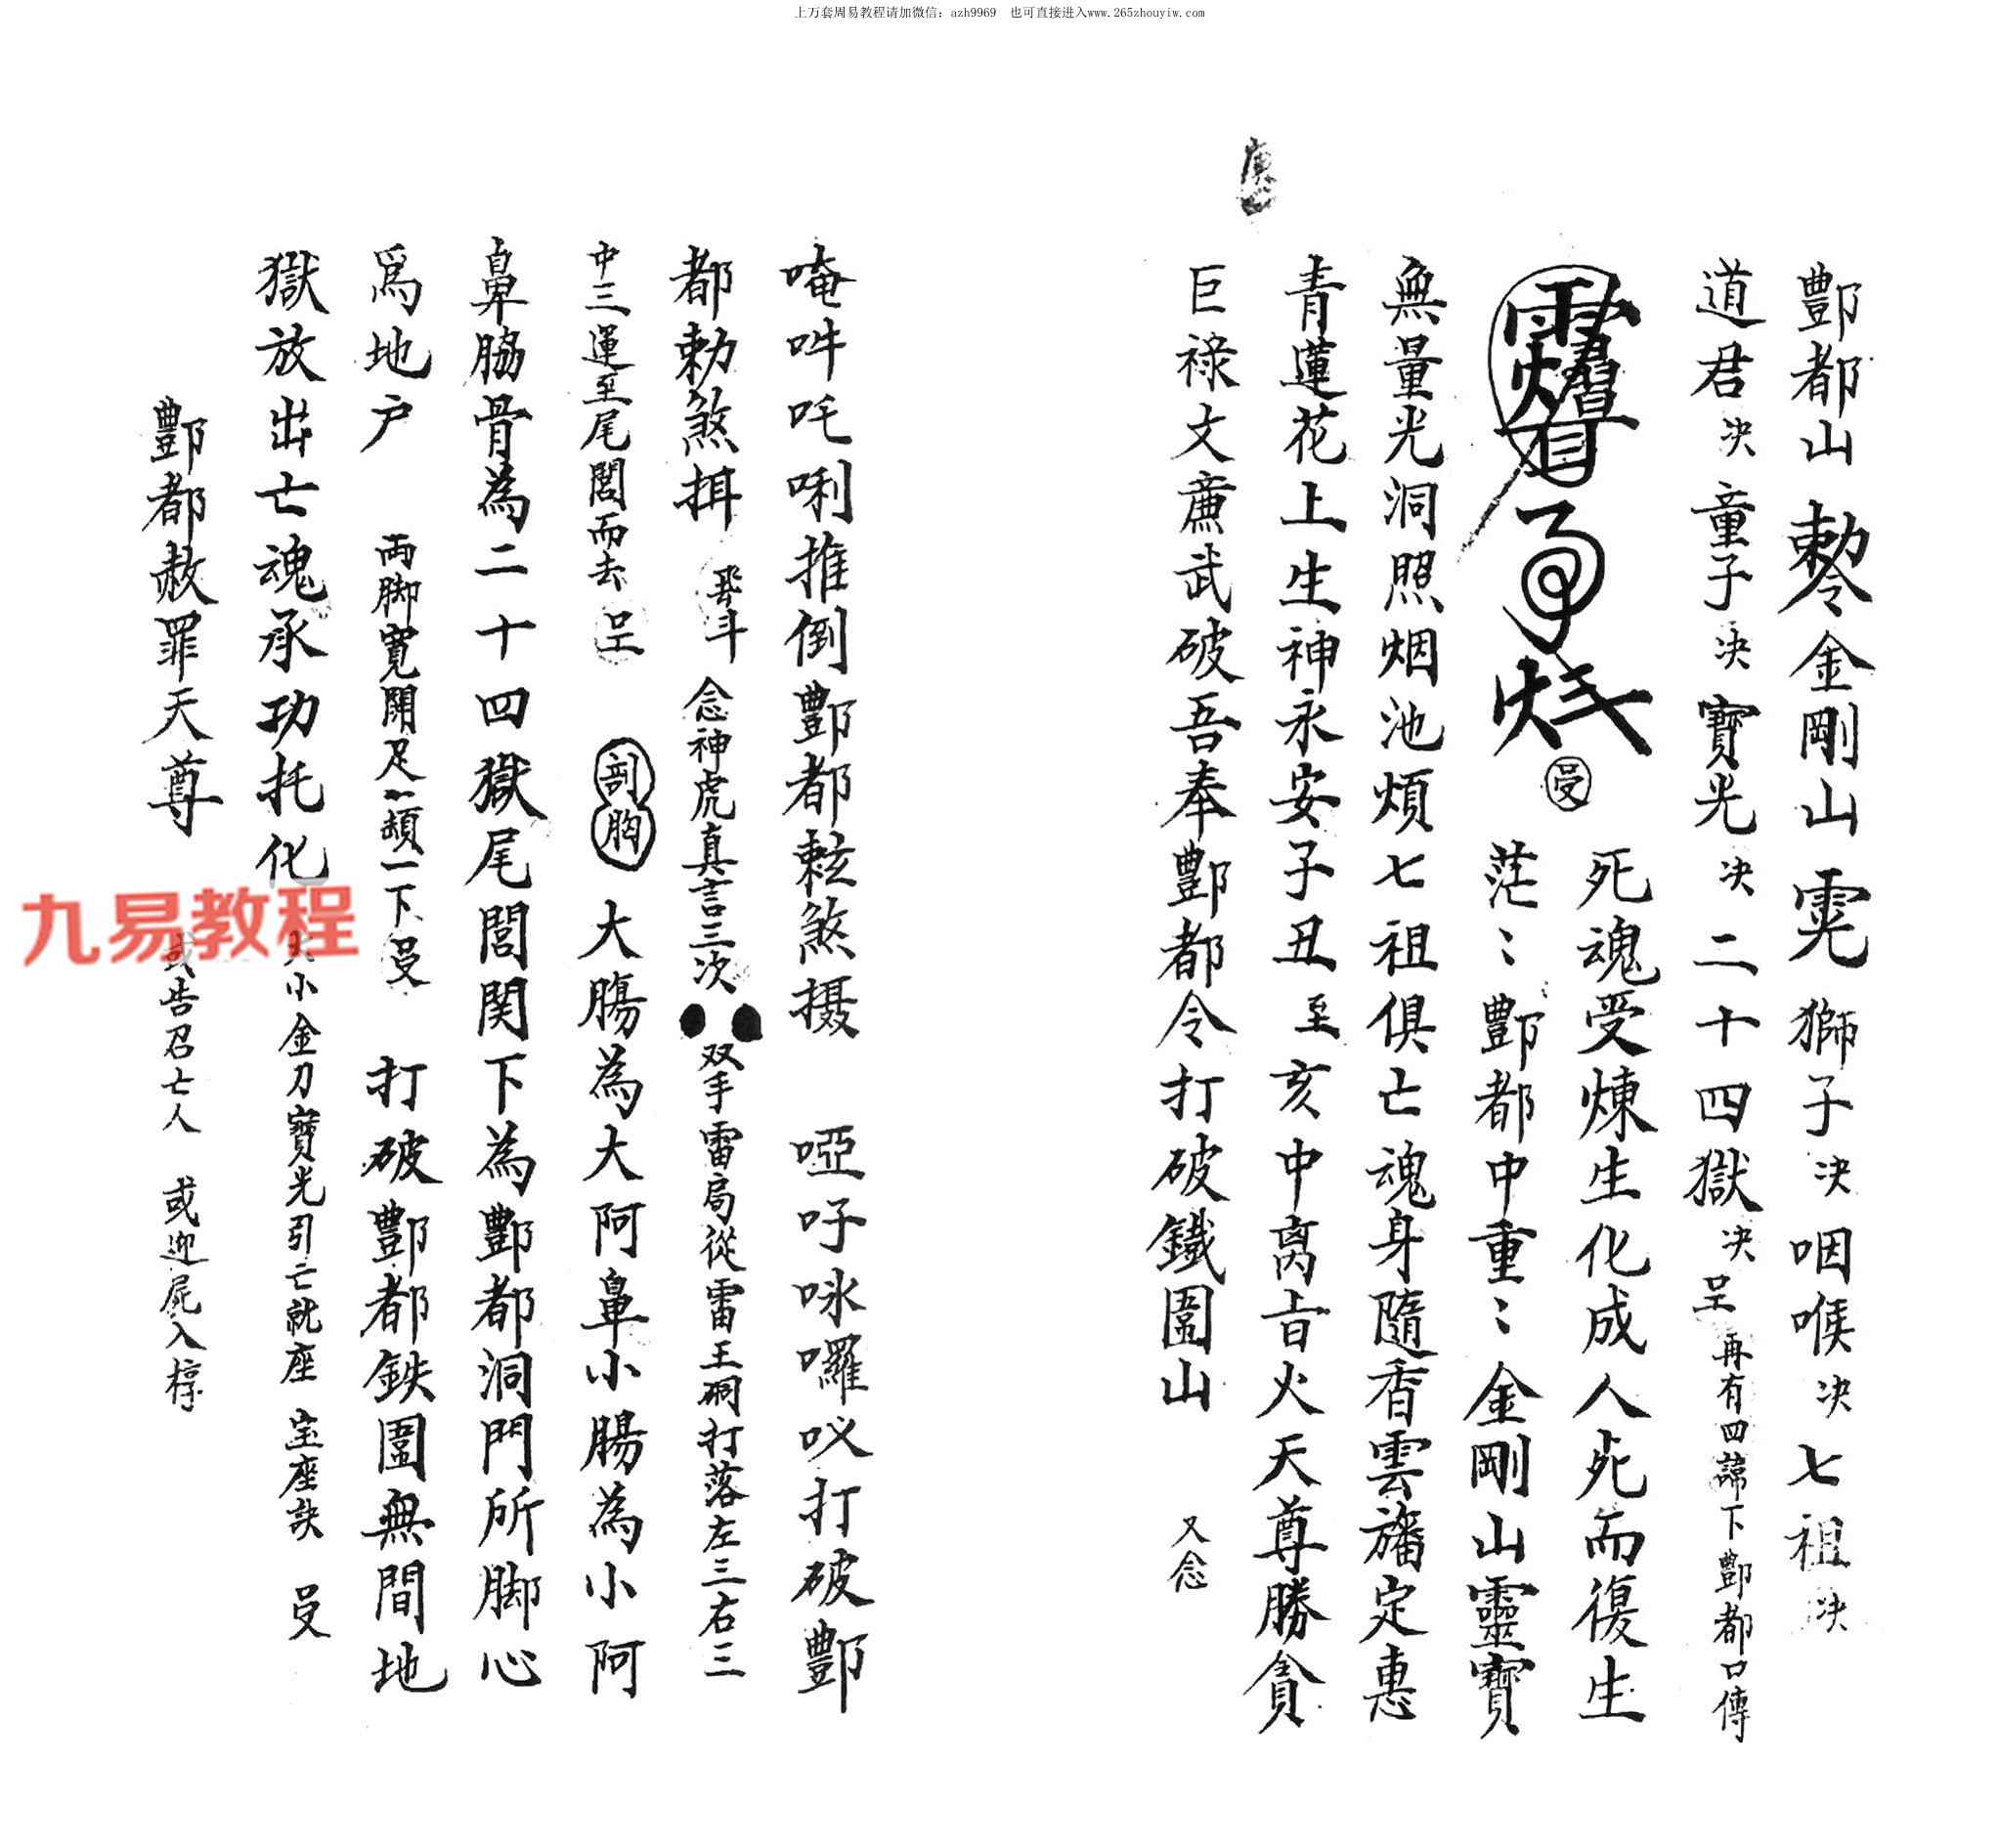 上万套周易教程请加微信：azh9969 也可直接进入www.265zhouyiw.com
酆都山 敕令金剛山 獅子决 咽喉决 七祖决
道君决 童子决 寶光决 二十四獄决 再有四諦下酆都口傳
死魂受煉生化成人死而復生
茫〻酆都中重〻金剛山靈寶
無量光洞照烟池煩七祖俱亡魂身隨香雲旛定惠
青蓮花上生神永安子丑至亥中离旨火天尊勝貪
巨祿文亷武破吾奉酆都令打破鐵圍山 又念
唵吽吒唎推倒酆都煞摄 啞吇咏囉打破酆
都勅煞 斗 念神虎真言三次 双手雷局從雷王打落左三右三
中三運至尾閭而去 剖胸 大腸為大阿鼻小腸為小阿
鼻脇骨為二十四獄尾閭関下為酆都洞門所脚心
爲地户 両脚寛開足一頓一下 打破酆都鉄圍無間地
獄放出亡魂承功托化 大小金刀寶光引亡就座 宝座訣
酆都赦罪天尊 或告召亡人 或迎屍入椁
九易教程